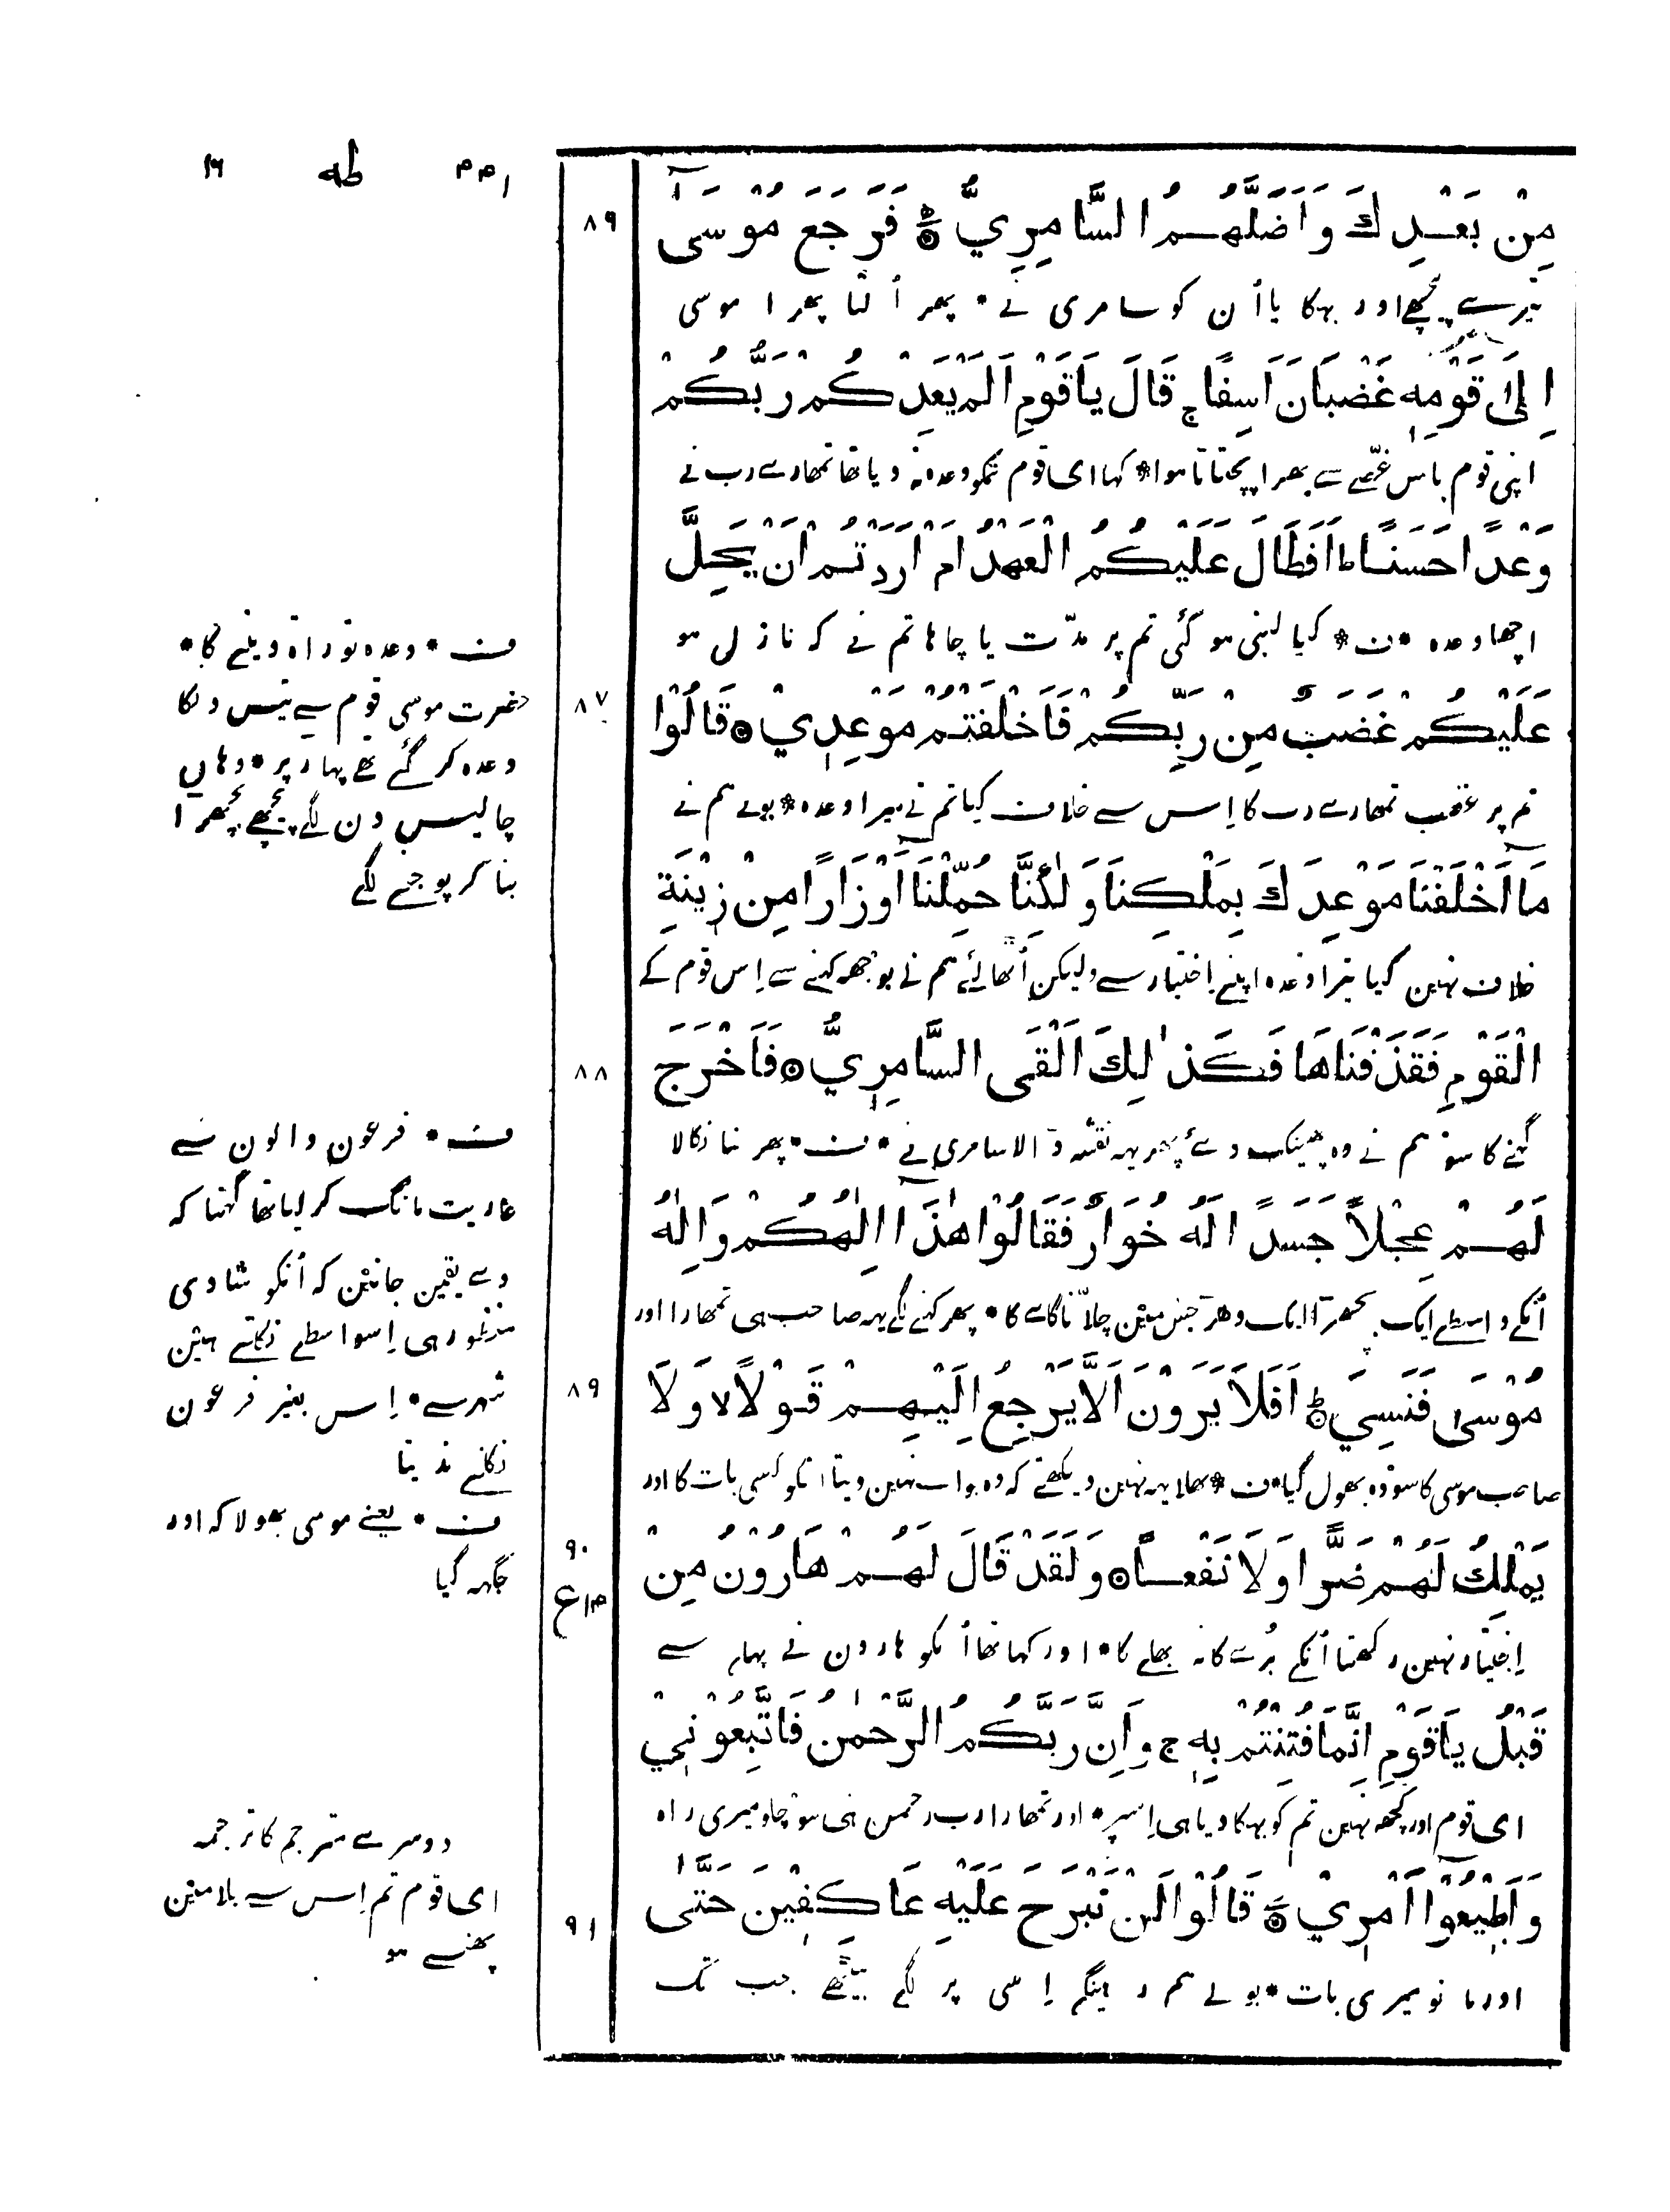 طه ١٦
مِنْ بَعْدِكَ وَاَضَلَّهُمُ السَّامِرِيُّ ۞ فَرَجَعَ مُوْسٰٓى ٨٩
تیرے پیچھے اور بہکایا اُن کو سامری نے * پھر اُلٹا پھرا موسی
اِلٰى قَوْمِهٖ غَضْبَانَ اَسِفًا ج قَالَ يَاقَوْمِ اَلَمْ يَعِدْكُمْ رَبُّكُمْ
اپنی قوم پاس غصّے سے بھرا پچتاتا ہوا * کہا ای قوم تمکو وعدہ نہ دیا تھا تمھارے رب نے
وَعْدًا حَسَنًا ط اَفَطَالَ عَلَيْكُمُ الْعَهْدُ اَمْ اَرَدْتُمْ اَنْ يَحِلَّ
اچھا وعدہ * ف * کیا لنبی ہو گئی تم پر مدّت یا چاہا تم نے کہ نازل ہو
عَلَيْكُمْ غَضَبٌ مِنْ رَبِّكُمْ فَاَخْلَفْتُمْ مَوْعِدِيْ ۞ قَالُوْا ٨٧
تم پر غضب تمھارے رب کا اِس سے خلاف کیا تم نے میرا وعدہ * بولے ہم نے
مَا اَخْلَفْنَا مَوْعِدَكَ بِمَلْكِنَا وَلٰكِنَّا حُمِّلْنَا اَوْزَارًا مِنْ زِيْنَةِ
خلاف نہین کیا تیرا وعدہ اپنے اِختیار سے ولیکن اُٹھائے ہم نے بوجھ کہنے سے اِس قوم کے
الْقَوْمِ فَقَذَفْنَاهَا فَكَذٰلِكَ اَلْقَى السَّامِرِيُّ ۞ فَاَخْرَجَ ٨٨
گہنے کا سو ہم نے وہ پھینک دئے پھر یہہ نقشہ ڈالا سامری نے * ف * پھر بنا نکالا
لَهُمْ عِجْلًا جَسَدًا لَهُ خُوَارٌ فَقَالُوْا هٰذَا اِلٰهُكُمْ وَاِلٰهُ
اُنکے واسطے ایک بچھڑا ایک دھڑ جس مین چلّانا گاے کا * پھر کہنے لگے یہہ صاحب ہی تمھارا اور
مُوْسٰى فَنَسِيَ ۞ اَفَلَا يَرَوْنَ اَلَّا يَرْجِعُ اِلَيْهِمْ قَوْلًا لا وَلَا ٨٩
صاحب موسی کا سو وہ بھول گیا * ف * بھلا یہہ نہین دیکھتے کہ وہ جواب نہین دیتا انکو کسی بات کا اور
يَمْلِكُ لَهُمْ ضَرًّا وَلَا نَفْعًا ۞ وَلَقَدْ قَالَ لَهُمْ هَارُوْنُ مِنْ ٩٠
اِختیار نہین رکھتا اُنکے بُرے کا نہ بھلے کا * اور کہا تھا اُنکو ہارون نے پہلے سے
قَبْلُ يَاقَوْمِ اِنَّمَا فُتِنْتُمْ بِهٖ ج وَاِنَّ رَبَّكُمُ الرَّحْمٰنُ فَاتَّبِعُوْنِيْ
ای قوم اور کچھ نہین تم کو بہکا دیا ہی اِسپر * اور تمھارا رب رحمن ہی سو چلو میری راہ
وَاَطِيْعُوْا اَمْرِيْ ۞ قَالُوْا لَنْ نَبْرَحَ عَلَيْهِ عَاكِفِيْنَ حَتّٰى ٩١
اور مانو میری بات * بولے ہم رہینگے اِسی پر لگے بیٹھے جب تک
ف * وعدہ توراۃ دینے کا *
حضرت موسی قوم سے تیس دن کا
وعدہ کر گئے تھے پہاڑ پر * وہان
چالیس دن لگے پیچھے بچھڑا
بنا کر پوجنے لگے
ف * فرعون والون سے
عاریت مانگ کر لیا تھا گہنا کہ
وے یقین جانین کہ اُنکو شادی
منظور ہی اِسواسطے نکلتے ہین
شہر سے * اِس بغیر فرعون
نکلنے ندیتا
ف * یعنے موسی بھولا کہ اور
جگہہ گیا
دوسرے مترجم کا ترجمہ
ای قوم تم اِس سے بلا مین
پھنسے ہو